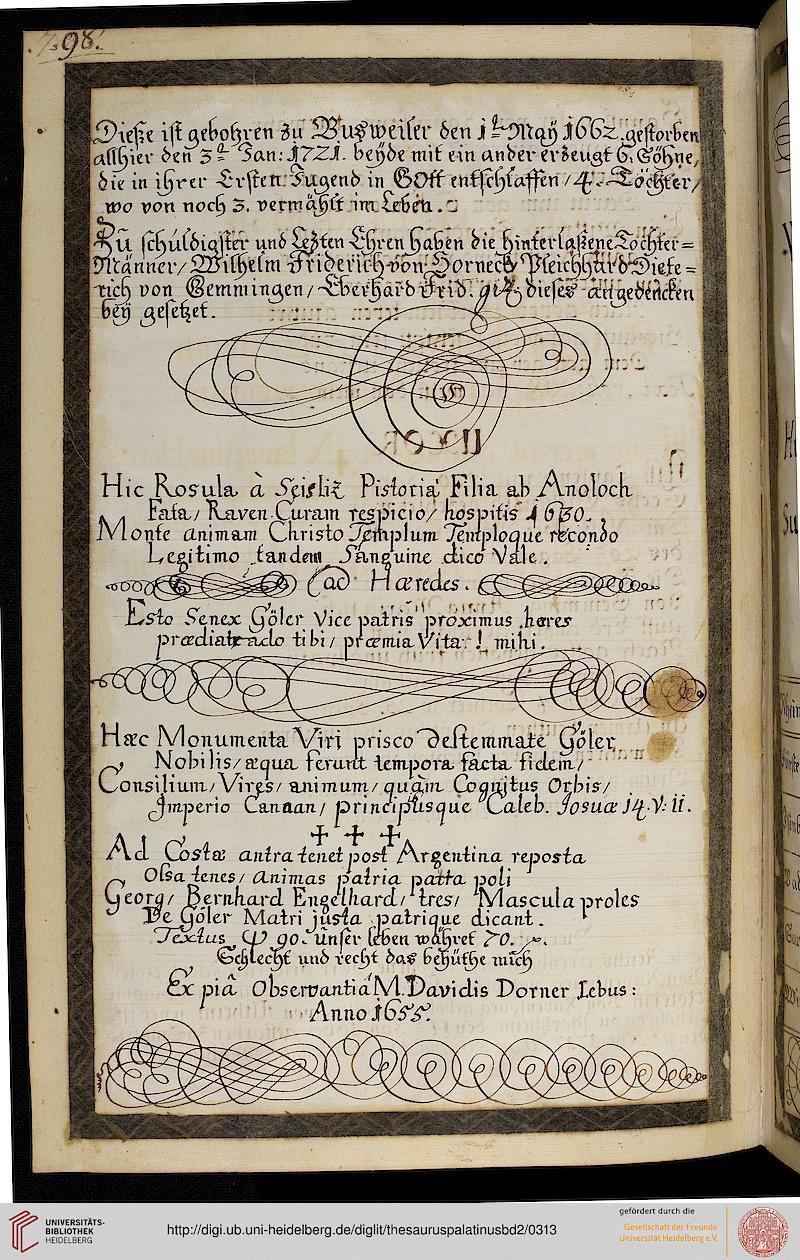 798.
Dieße ist gebohren zu Busweiler den 1t. May 1662. gestorben
allhier den 3t. Jan: 1721. beyde mit ein ander erzeugt 6. Söhne,
die in ihrer Ersten Jugend in Gott entschlaffen / 4. Töchter /
wo von noch 3. vermählt im Leben.
Zu schuldigster und Lezten Ehren haben die hinterlaßene Tochter=
Männer / Wilhelm Friderich von Horneck Pleichhard Diete=
rich von Gemmingen / Eberhard Frid. dieses angedencken
bey gesetzet.
Hic Rosula à Pistoria Filia ab Anoloch
Fata / Raven Curam respicio / hospitis 1630.
Monte animam Christo Templum Temploque recondo
Legitimo tandem Sanguine dico Vale.
ad Hæredes.
Esto Senex Göler Vice patris proximus hæres
tibi / præmia Vita ! mihi.
Hæc Monumenta Viri prisco destemmate Göler
Nobilis / æqua ferunt tempora facta fidem /
Consilium / Vires / animum / quàm Cognitus Orbis /
Imperio Canaan / principiisque Caleb. Josuæ 14. V: 11.
Ad Costæ antra tenet post Argentina reposta
Ossa tenes / animas patria patta poli
Georg / Bernhard Engelhard / tres / Mascula proles
De Göler Matri justa patrique dicant.
Textus Ψ 90. unser leben währet 70.
Schlecht und recht das behüthe mich
Ex piâ Observantiâ M. Davidis Dorner Lebus:
Anno 1655.
UNIVERSITÄTS-
BIBLIOTHEK
HEIDELBERG
http://digi.ub.uni-heidelberg.de/diglit/thesauruspalatinusbd2/0313
gefördert durch die
Gesellschaft der Freunde
Universität Heidelberg e.V.